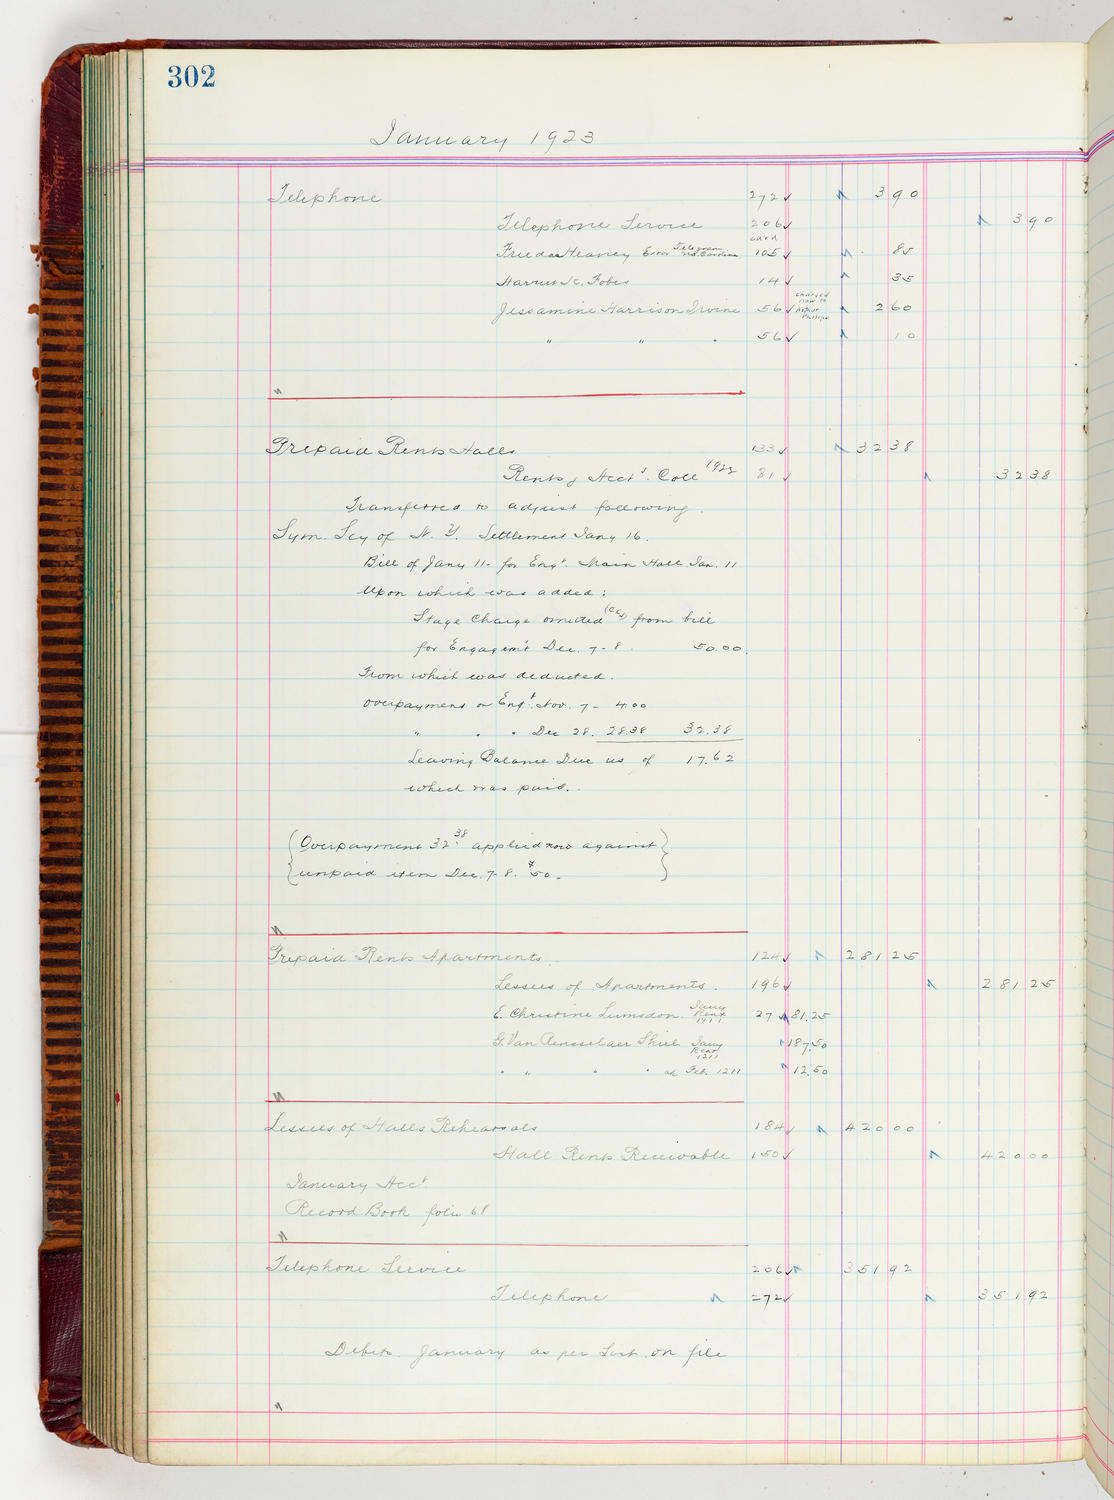 302
January 1923
Telephone 272 ✓ 3 90
Telephone Service 206 ✓ 3 90
card
Frieda Heaney Error Telegram No. Carolina 105 ✓ 85
Harriet 14 ✓ 35
Jessamine Harrison Irvine 56 ✓ charged now to Arthur Phillips 2 60
" " " 56 ✓ 10
Prepaid Rents Halls 133 ✓ 32 38
Rents & Acct's. Coll 1922 81 ✓ 32 38
Transferred to adjust following.
Sym. Scy of N. Y. Settlement Jany 16.
Bill of Jany 11- for Engt. Main Hall Jan. 11
Upon which was added:
Stage Charge omitted from bill
for Engagem't Dec. 7-8. 50.00
From which was deducted.
overpayment on Engt. Nov. 7- 4.00
" " " Dec 28. 28.38 32.38
Leaving Balance Due us of 17.62
which was paid.
(Overpayment 32.38 applied now against
unpaid item Dec. 7-8. $50.-)
Prepaid Rents Apartments 124 ✓ 281 25
Lessees of Apartments. 196 ✓ 281 25
E. Christine Lumsdon. Jany Rent 1111 27 ✓ 81.25
G. Van Rensselaer Shiel Jany Rent 1211 187.50
" " " " Feb. 1211 12.50
Lessees of Halls Rehearsals 184 ✓ 420 00
Hall Rents Receivable 150 ✓ 420 00
January Acct
Record Book folio 68
Telephone Service 206 ✓ 351 92
Telephone 272 ✓ 351 92
Debits January as per List on file